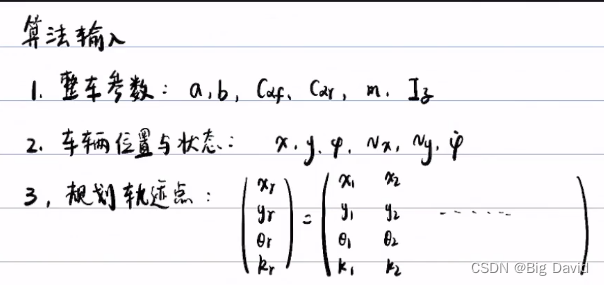 算法输入
1. 整车参数： a, b, Cαf, Cαr, m, Iz
2. 车辆位置与状态： x, y, φ, vx, vy, φ̇
3, 规划轨迹点： (xr yr θr kr) = (x1 x2
y1 y2 ------
θ1 θ2
k1 k2 )
CSDN @Big David